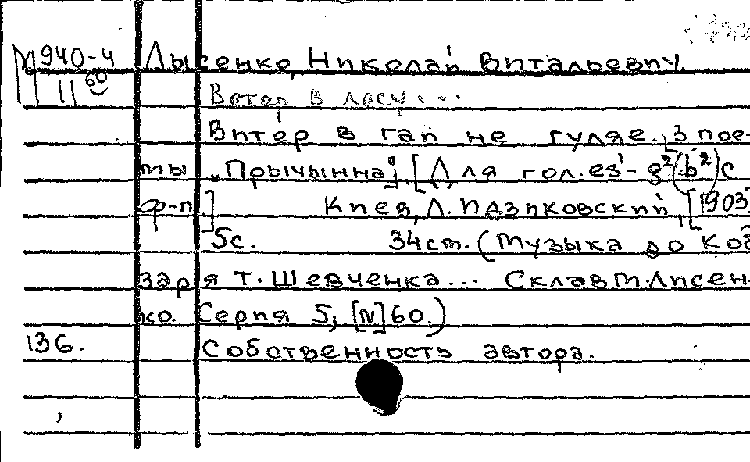 М940-4 Лысенко, Николай Витальевич.
11 60 Ветер в лесу...
Витер в гаи не гуляе. З пое-
мы „Прычынна“. [Для гол. es¹-g²(b²) с
ф-п.] Киев, Л. Идзиковский, [1903]
5с. 34см. (Музыка до Коб
заря Т. Шевченка... Склав М. Лисен-
ко. Серия 5, [N]60.)
136. Собственность автора.